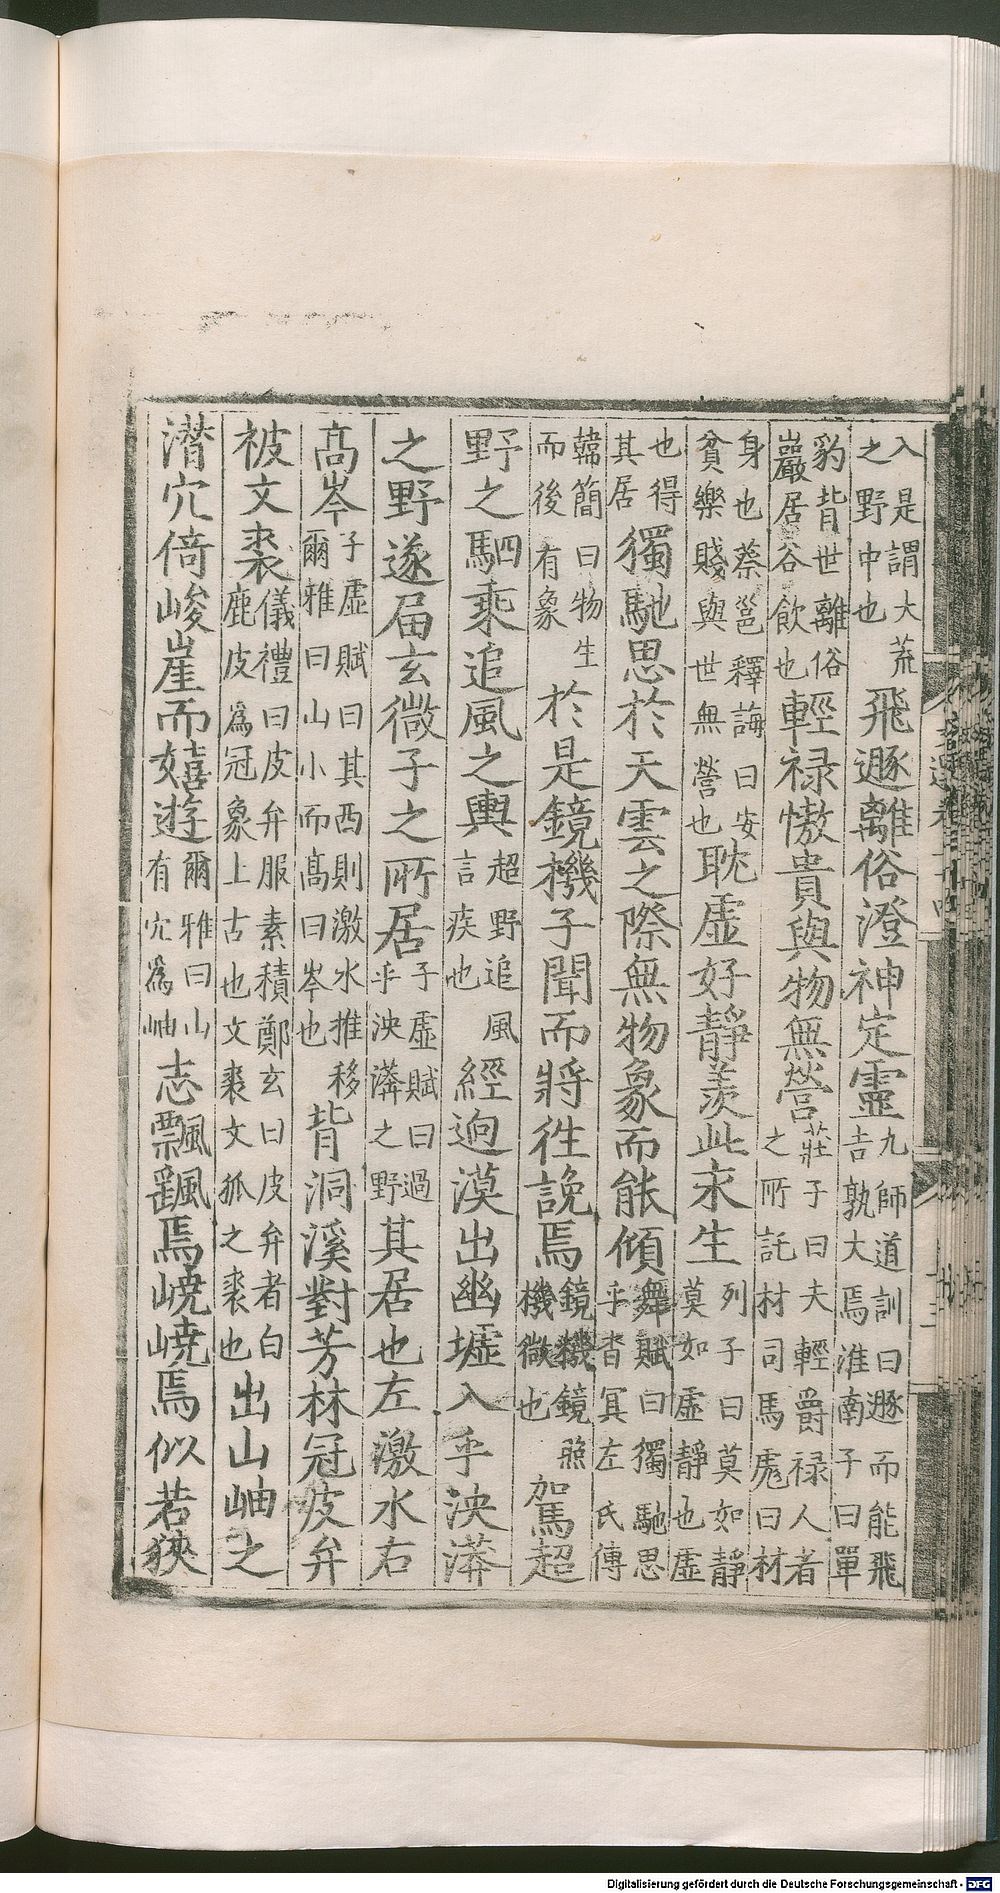 入是謂大荒之野中也飛遯離俗澄神定靈九師道訓曰遯而能飛吉孰大焉淮南子曰單
豹背世離俗巖居谷飲也輕禄慠貴與物無營莊子曰夫輕爵禄人者之所託材司馬彪曰材
身也蔡邕釋誨曰安貧樂賤與世無營也耽虛好靜羨此永生列子曰莫如靜莫如虛靜也虛
也得其居獨馳思於天雲之際無物象而能傾舞賦曰獨馳思乎杳冥左氏傳
韓簡曰物生而後有象於是鏡機子聞而將徃說焉鏡機鏡照機微也駕超
野之駟乘追風之輿超野追風言疾也經逈漠出幽墟入乎泱漭
之野遂屆玄微子之所居子虛賦曰過乎泱漭之野其居也左激水右
高岑子虛賦曰其西則激水推移爾雅曰山小而高曰岑也背洞溪對芳林冠皮弁
被文裘儀禮曰皮弁服素積鄭玄曰皮弁者白鹿皮為冠象上古也文裘文狐之裘也出山岫之
潜穴倚峻崖而嬉遊爾雅曰山有穴為岫志飄飖焉嶢嶢焉似若狹
Digitalisierung gefördert durch die Deutsche Forschungsgemeinschaft - DFG